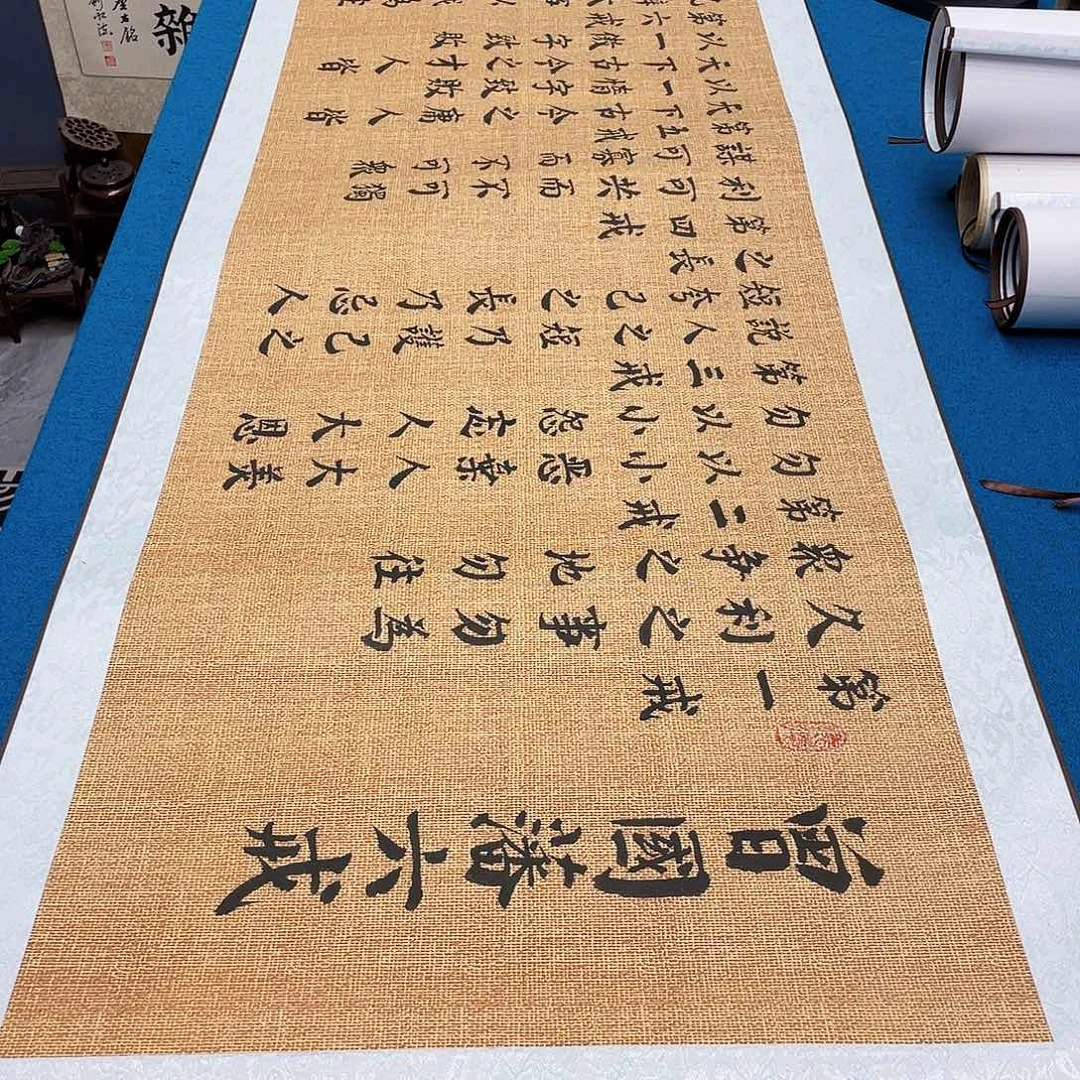 曾國藩六戒
第一戒
久利之事勿為
眾争之地勿往
第二戒
勿以小惡棄人大義
勿以小怨忘人大恩
第三戒
說人之短乃護己之
短夸己之長乃忌人
之長
第四戒
利可共而不可獨
謀可寡而不可眾
第五戒
天下古今之庸人皆
以一惰字致敗
天下古今之才人皆
以一傲字致敗
第六戒
雜
座右銘